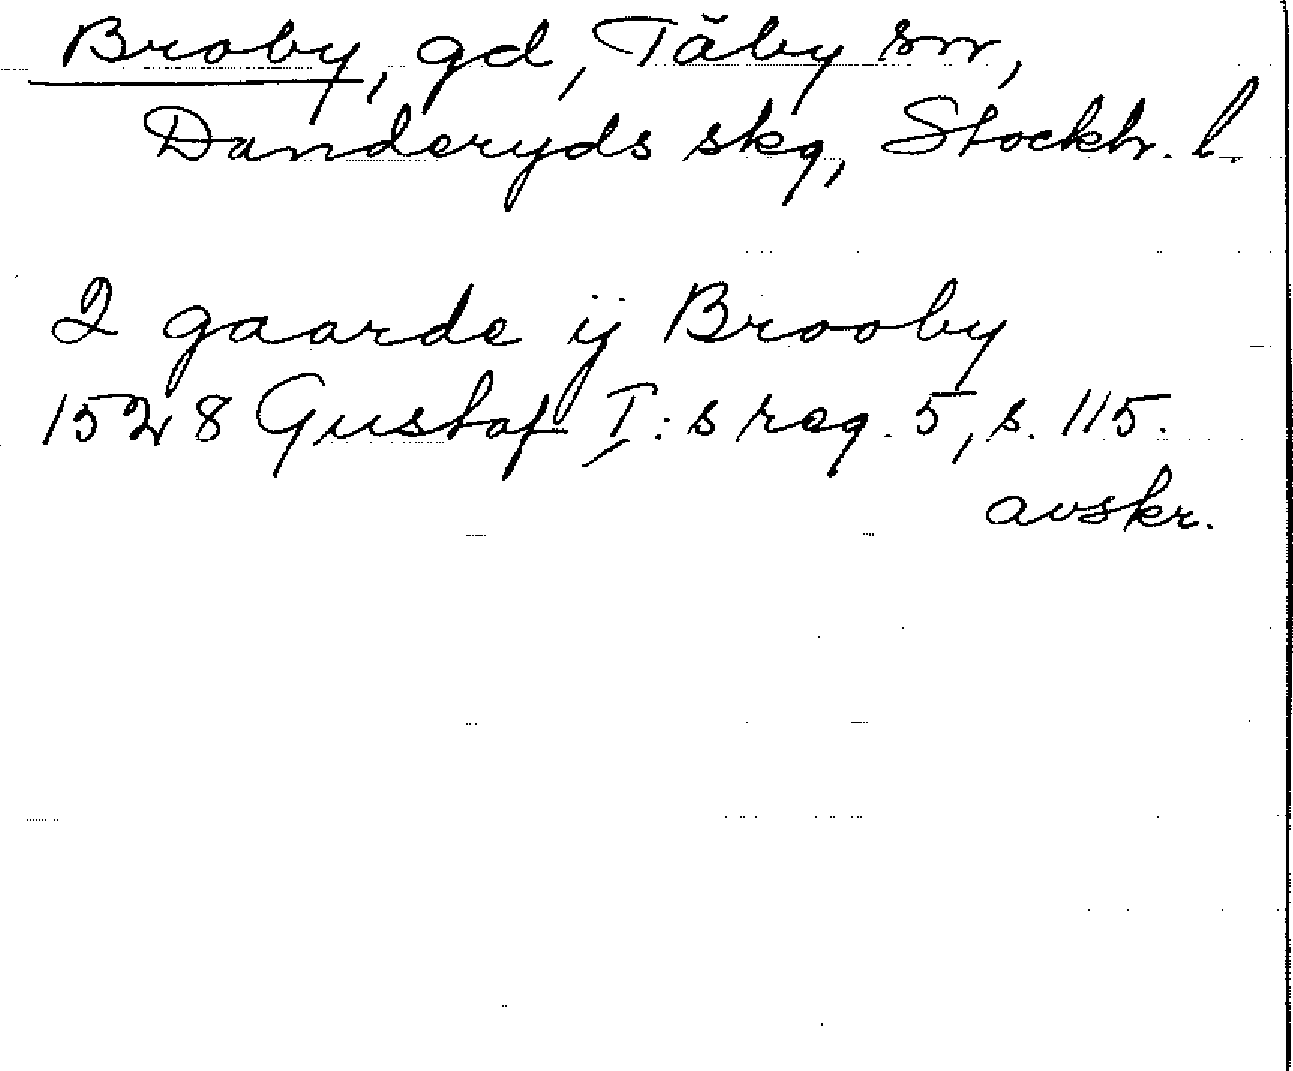 Broby, gd, Täby sn,
Danderyds skg, Stockh. l.
2 gaarde ij Brooby
1528 Gustaf I:s reg. 5, s. 115.
avskr.